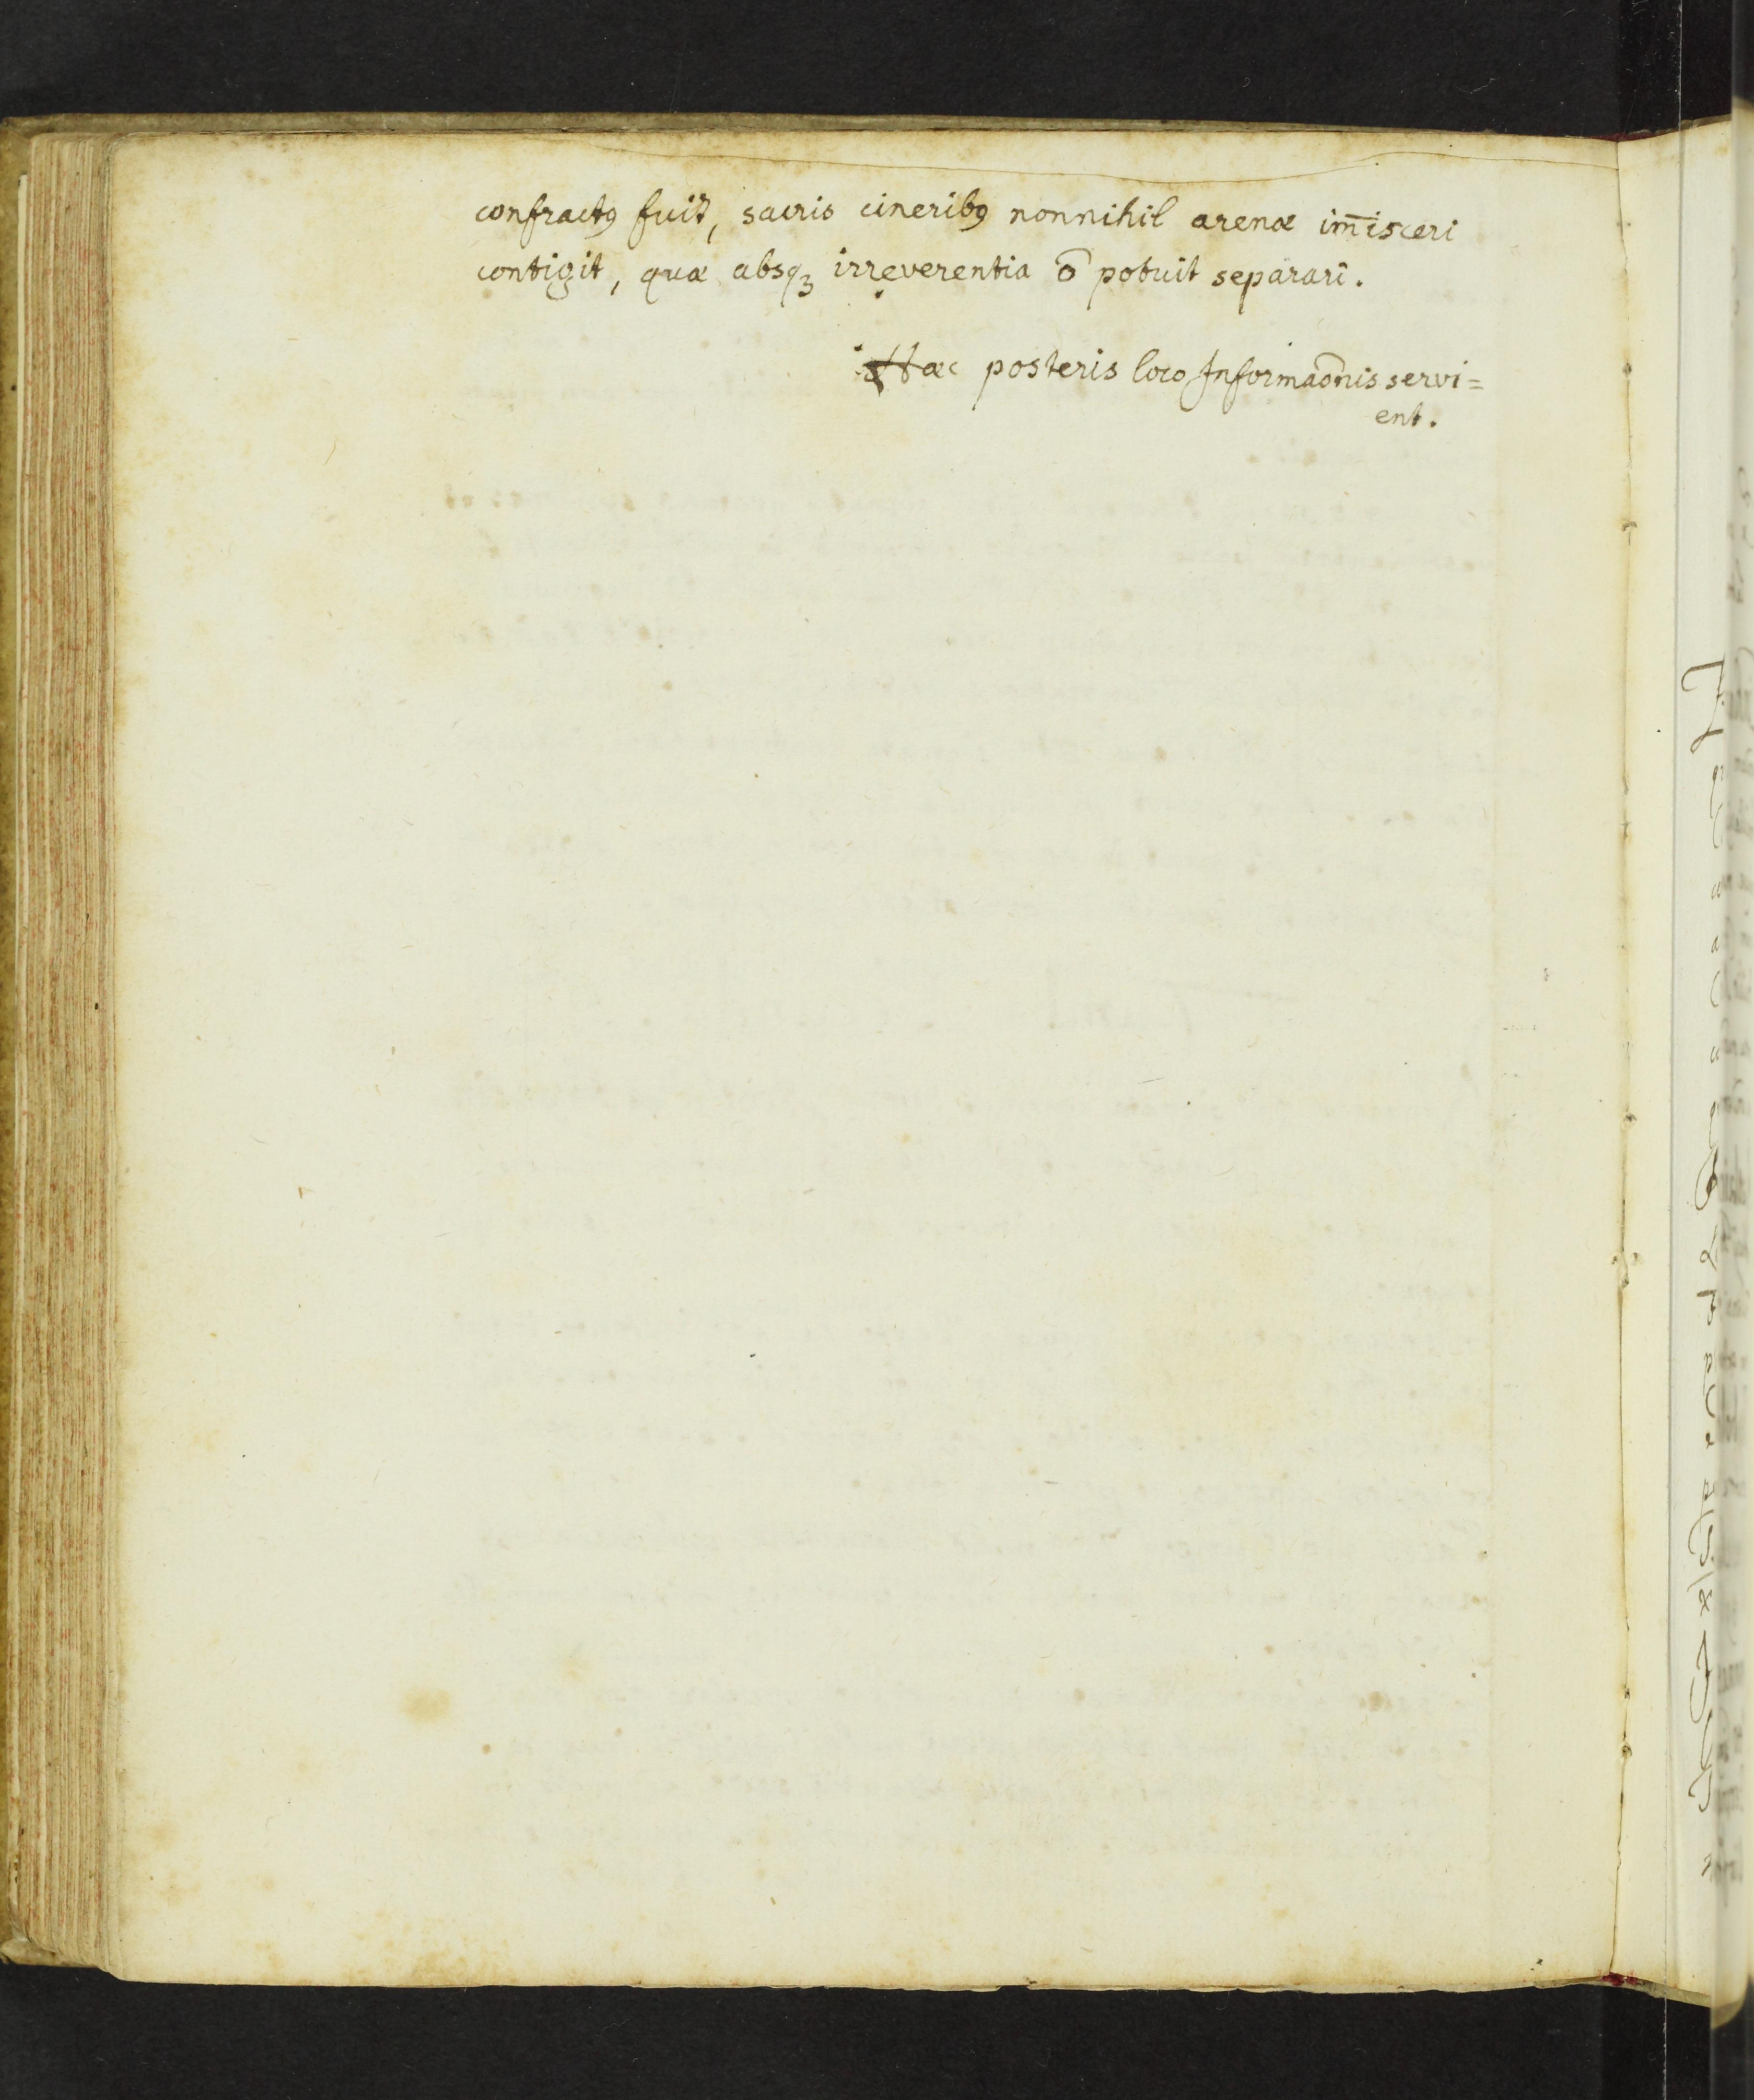 confractꝯ fuit, sacris cineribꝯ nonnihil arenæ im̄isceri
contigit, quæ absqꝫ irreverentia ō potuit separari.
Hæc posteris loco Informaōnis servi=
ent.